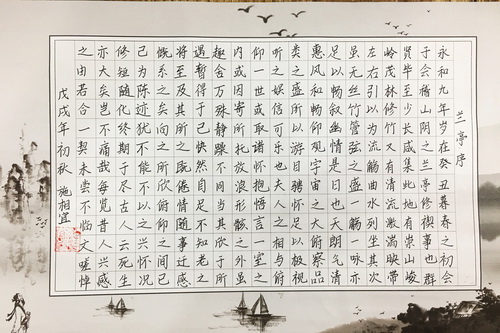 兰亭序
永和九年岁在癸丑暮春之初会
于会稽山阴之兰亭修禊事也群
贤毕至少长咸集此地有崇山峻
岭茂林修竹又有清流激湍映带
左右引以为流觞曲水列坐其次
虽无丝竹管弦之盛一觞一咏亦
足以畅叙幽情是日也天朗气清
惠风和畅仰观宇宙之大俯察品
类之盛所以游目骋怀足以极视
听之娱信可乐也夫人之相与俯
仰一世或取诸怀抱悟言一室之
内或因寄所托放浪形骸之外虽
趣舍万殊静躁不同当其欣于所
遇暂得于己快然自足不知老之
将至及其所之既倦情随事迁感
慨系之矣向之所欣俯仰之间已
已为陈迹犹不能不以之兴怀况
修短随化终期于尽古人云死生
亦大矣岂不痛哉每览昔人兴感
之由若合一契未尝不临文嗟悼
戊戌年初秋 施相宜